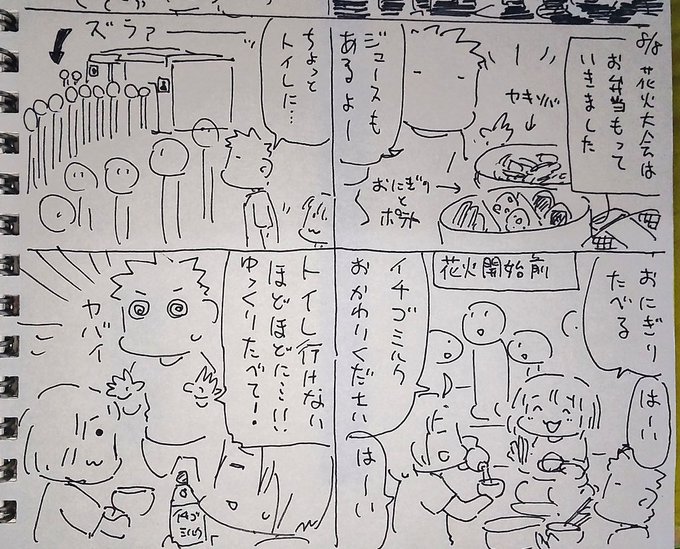 8/8 花火大会は
お弁当もって
いきました
ヤキソバ
ジュースも
あるよー
おにぎり
と
ポテト
ちょっと
トイレに…
ズラァー
花火開始前
おにぎり
たべる
はーい
イチゴミルク
おかわりください
はーい
トイレ行けない
ほどほどに…!!
ゆっくりたべて!
ヤバイ
イチゴ
ミルク